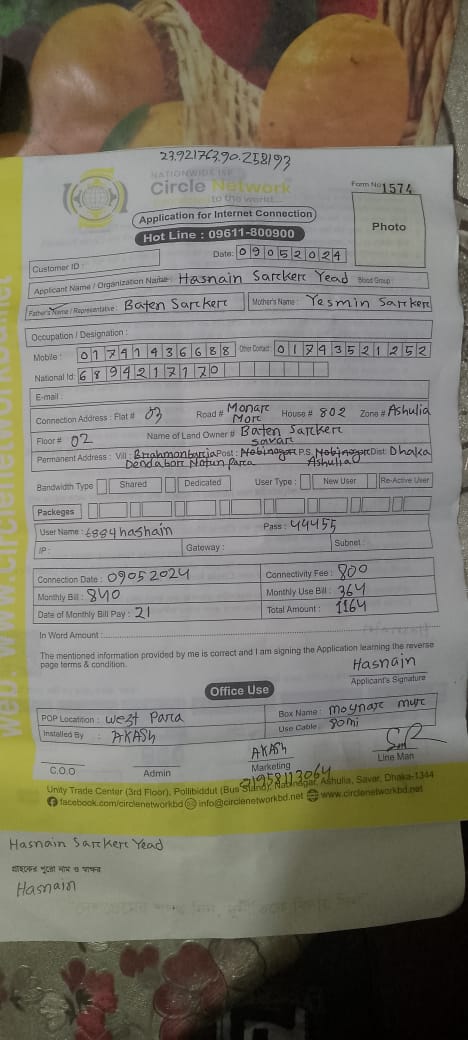 23.921763,90.258193
NATIONWIDE ISP
Circle Network
to the world...
Form No 1574
Application for Internet Connection
Hot Line : 09611-800900
Photo
Date: 09052024
Customer ID :
Applicant Name / Organization Name : Hasnain Sarker Yead Blood Group :
Father's Name / Representative : Baten Sarker Mother's Name : Yesmin Sarker
Occupation / Designation :
Mobile : 01741436688 Other Contact 01743521252
National Id: 6894217170
E-mail :
Connection Address : Flat # 03 Road # Monar More House # 802 Zone # Ashulia
Floor # 02 Name of Land Owner # Baten Sarker
Savar
Permanent Address : Vill : Brahmonbaria Post : Nobinagar P.S Nobinagar Dist: Dhaka
Dendabor Notun Para Ashulia
Bandwidth Type Shared Dedicated User Type : New User Re-Active User
Packeges
User Name : 6884hashain Pass : 44455
IP : Gateway : Subnet :
Connection Date : 09052024 Connectivity Fee : 800
Monthly Bill : 840 Monthly Use Bill : 364
Date of Monthly Bill Pay : 21 Total Amount : 1164
In Word Amount :
The mentioned information provided by me is correct and I am signing the Application learning the reverse
page terms & condition.
Hasnain
Applicant's Signature
Office Use
POP Locatition : West Para Box Name : moynar mure
Installed By : AKASH Use Cable : 80mi
AKASH
C.O.O Admin Marketing Line Man
01958113064
Unity Trade Center (3rd Floor), Pollibiddut (Bus Stand), Nabinagar, Ashulia, Savar, Dhaka-1344
facebook.com/circlenetworkbd info@circlenetworkbd.net www.circlenetworkbd.net
Hasnain Sarker Yead
গ্রাহকের পুরো নাম ও স্বাক্ষর
Hasnain